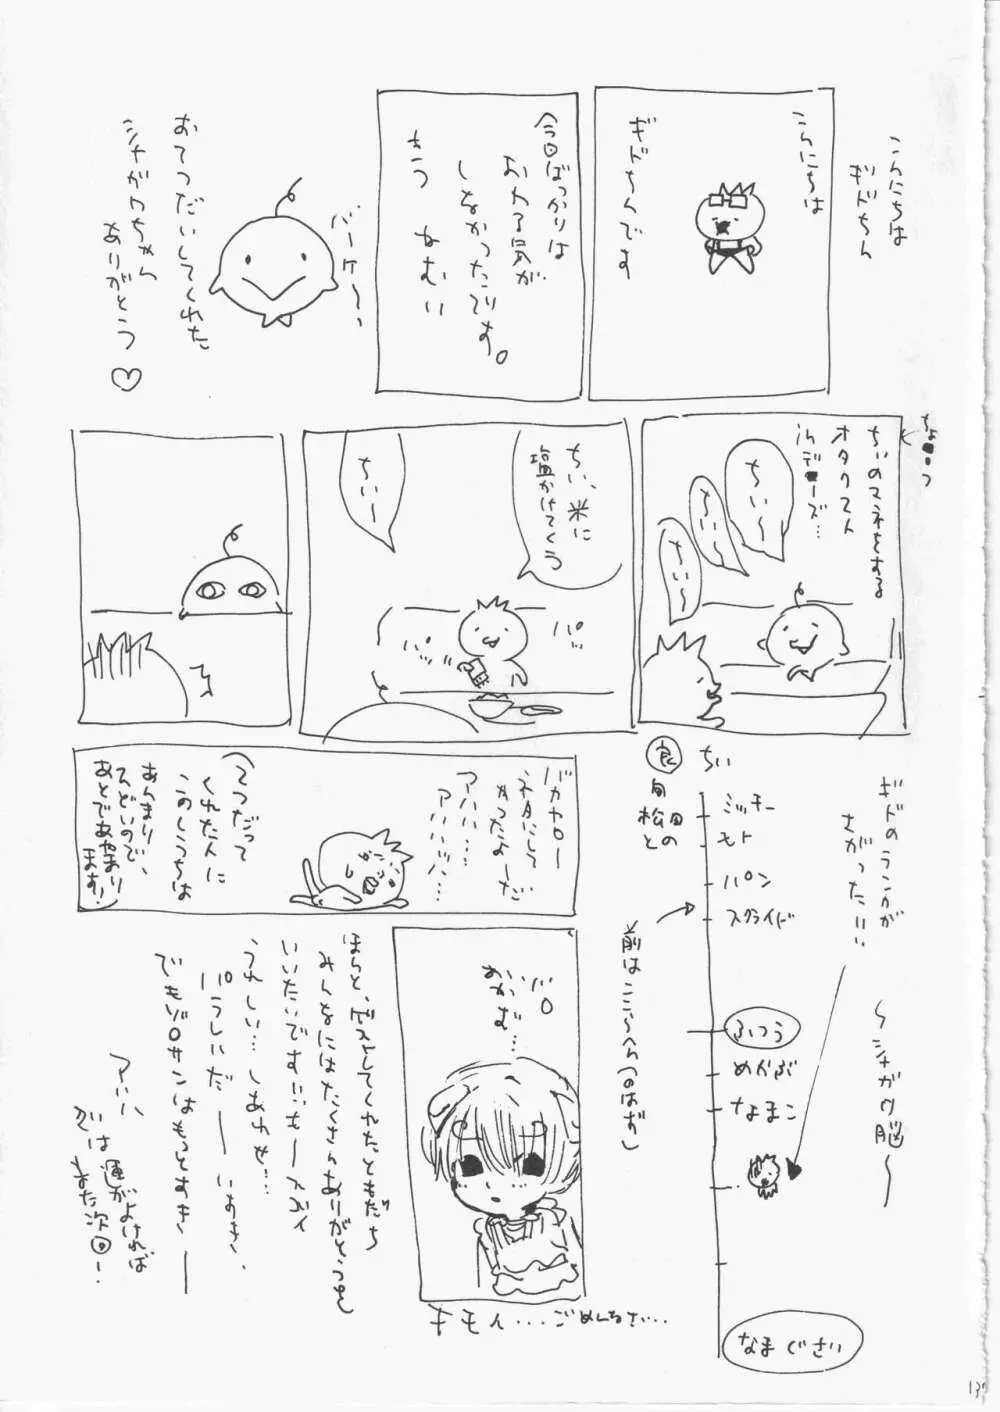 こんにちは
ギドちん
こんにちは
ギドちんです
今回ばっかりは
おわる気が
しなかったです。
もう ねむい
バーケ〜、
おてつだいしてくれた
シャガウちゃん
ありがとう♡
ちいのマネをする
オタクマスト
ちい〜
ちい〜
ちい〜
ちい、米に
塩かけてくう
ちいー
パッ
バカヤロー
ネタにして
やったよーだ
アハハ…
アハハハハ…
(てつだって
くれた人に
このしうちは
あんまり
ひどいので、
あとであやまり
ます!)
ギドのランクが
さがった!!!
〜シャガウ脳〜
ちい
ミッチー
モト
パン
スクライド
ふつう
めかぶ
なまこ
なまぐさい
良
旬
松田
との
前はここらへん(のはず)
おかず…
キモイ…ごめんなさい…
ほんと、ゲストしてくれたともだち
みんなにはたくさんありがとうを
いいたいです!!
うれしい…しあわせ…
でもゾロサンはもっとすきー
アハハ
では運がよければ
また次回ー!